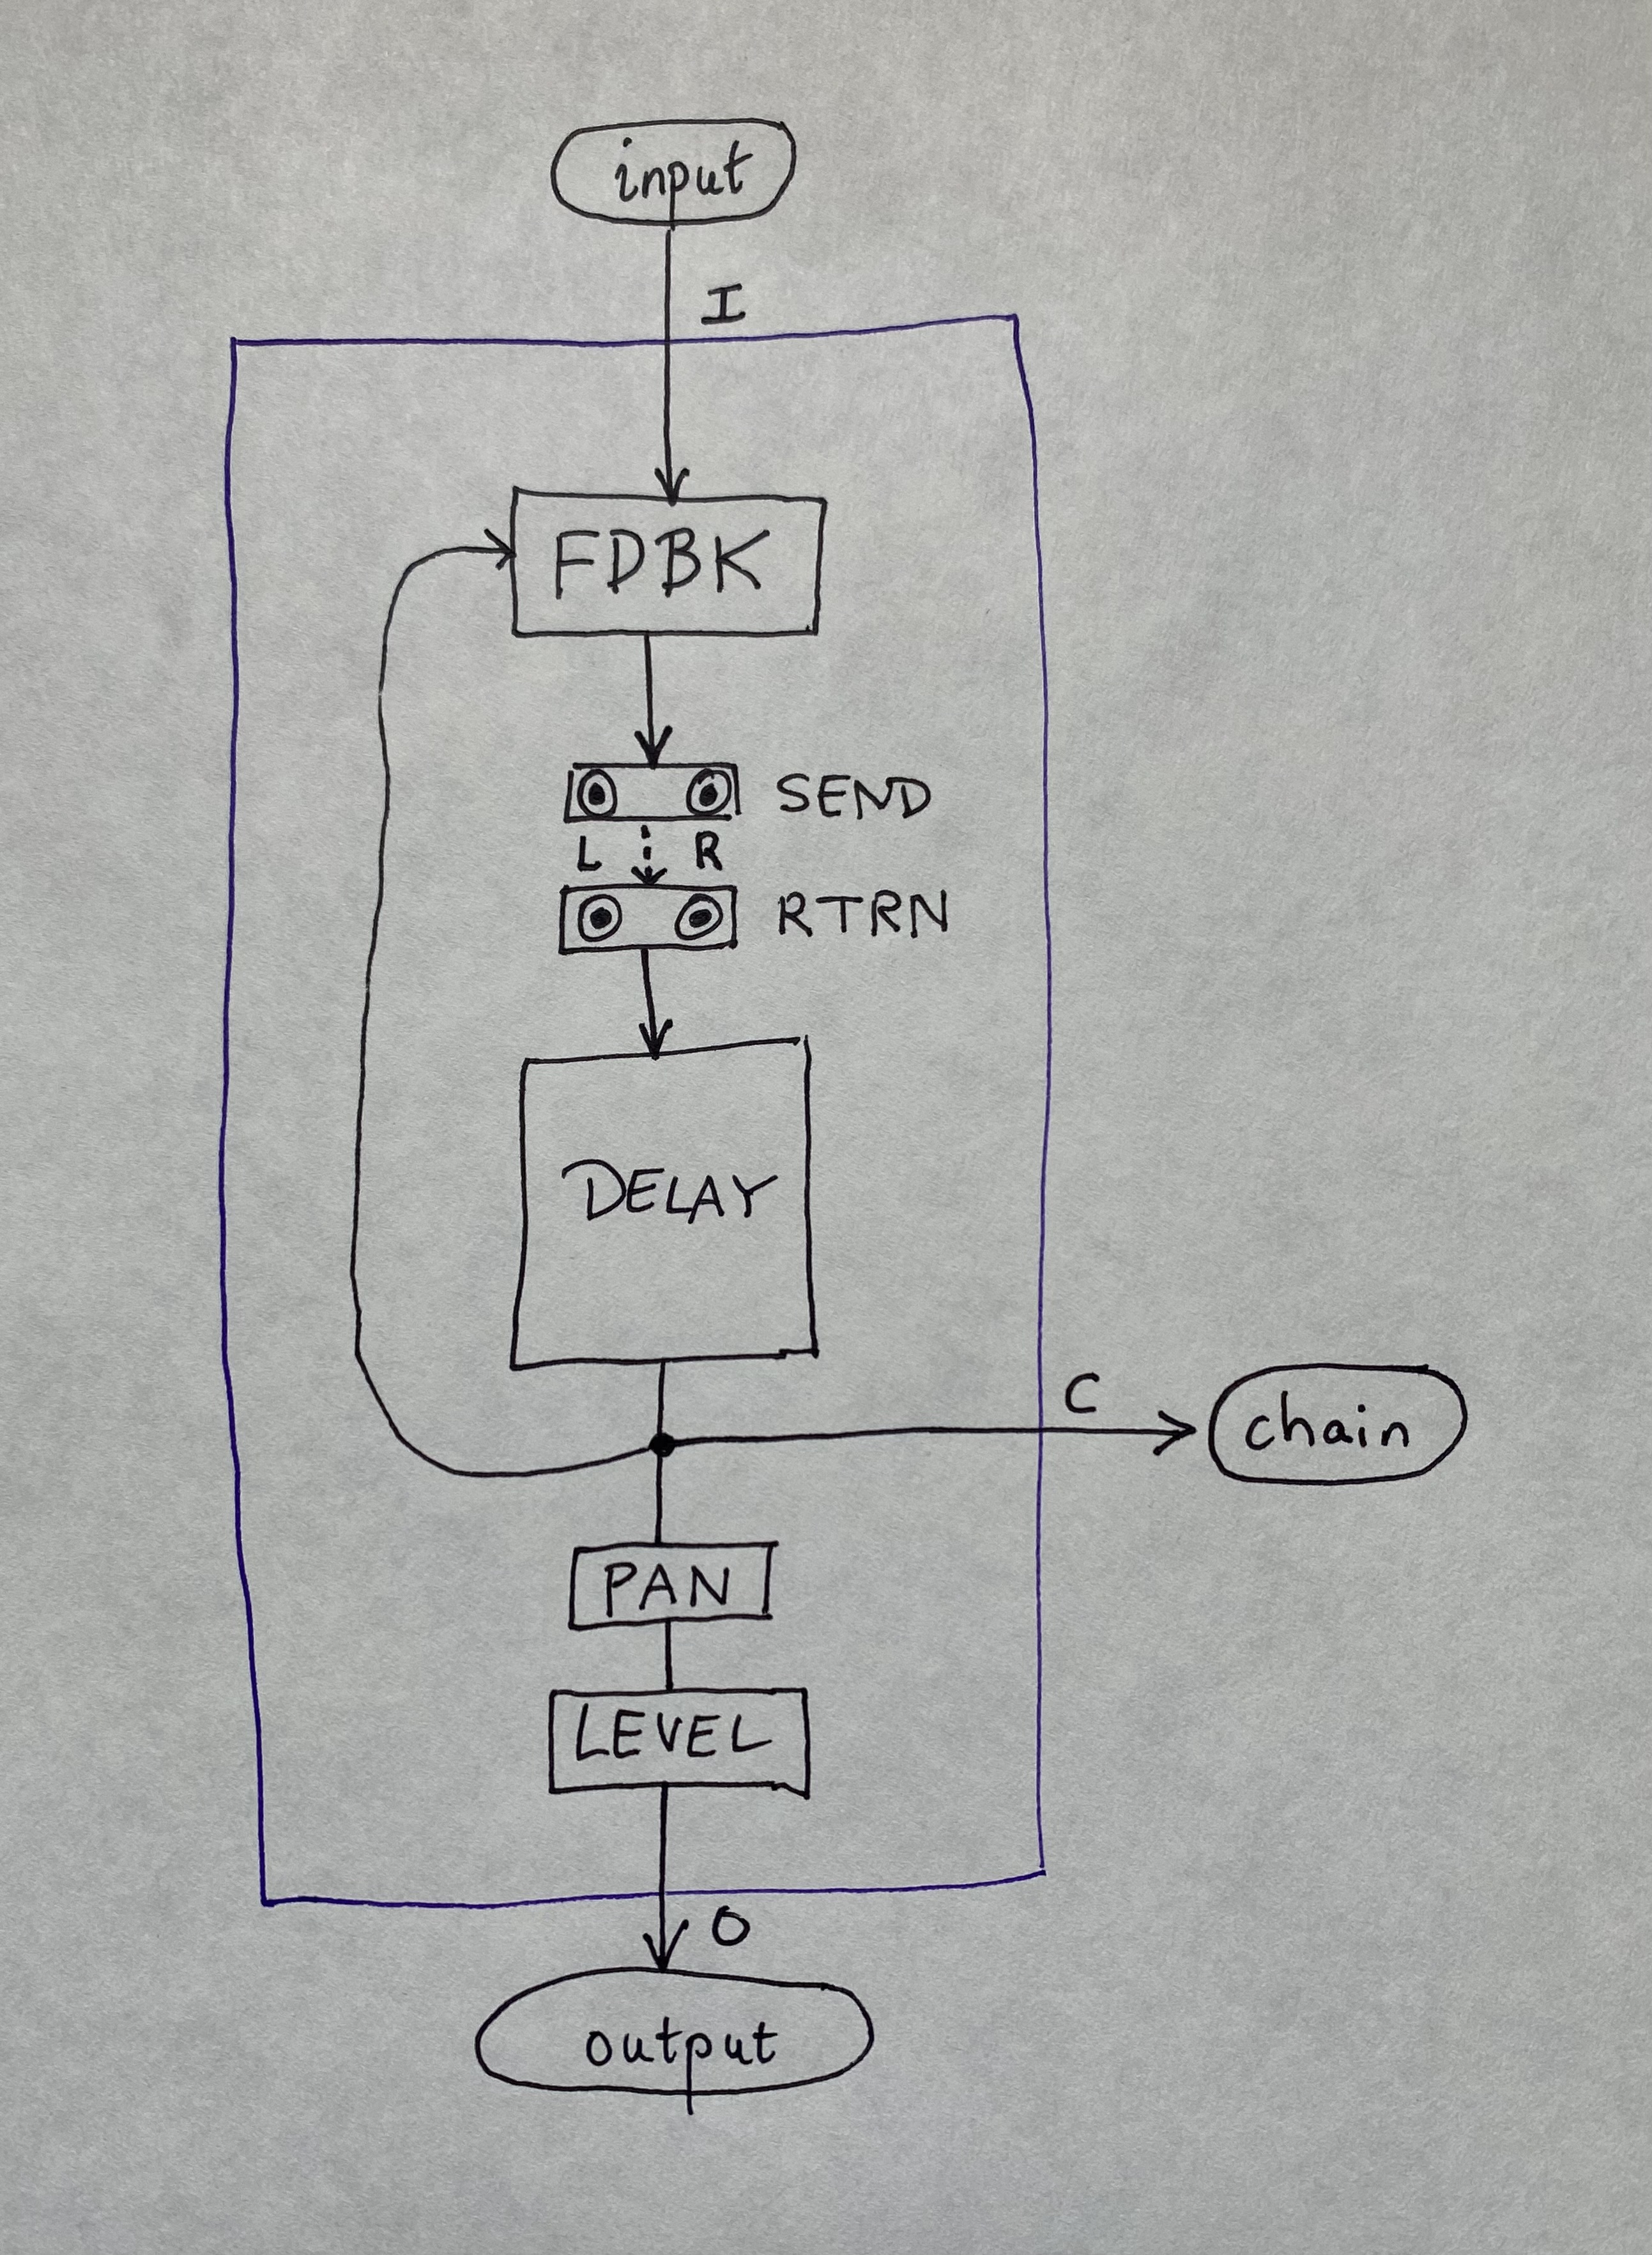 input
I
FDBK
SEND
L R
RTRN
DELAY
C
chain
PAN
LEVEL
O
output